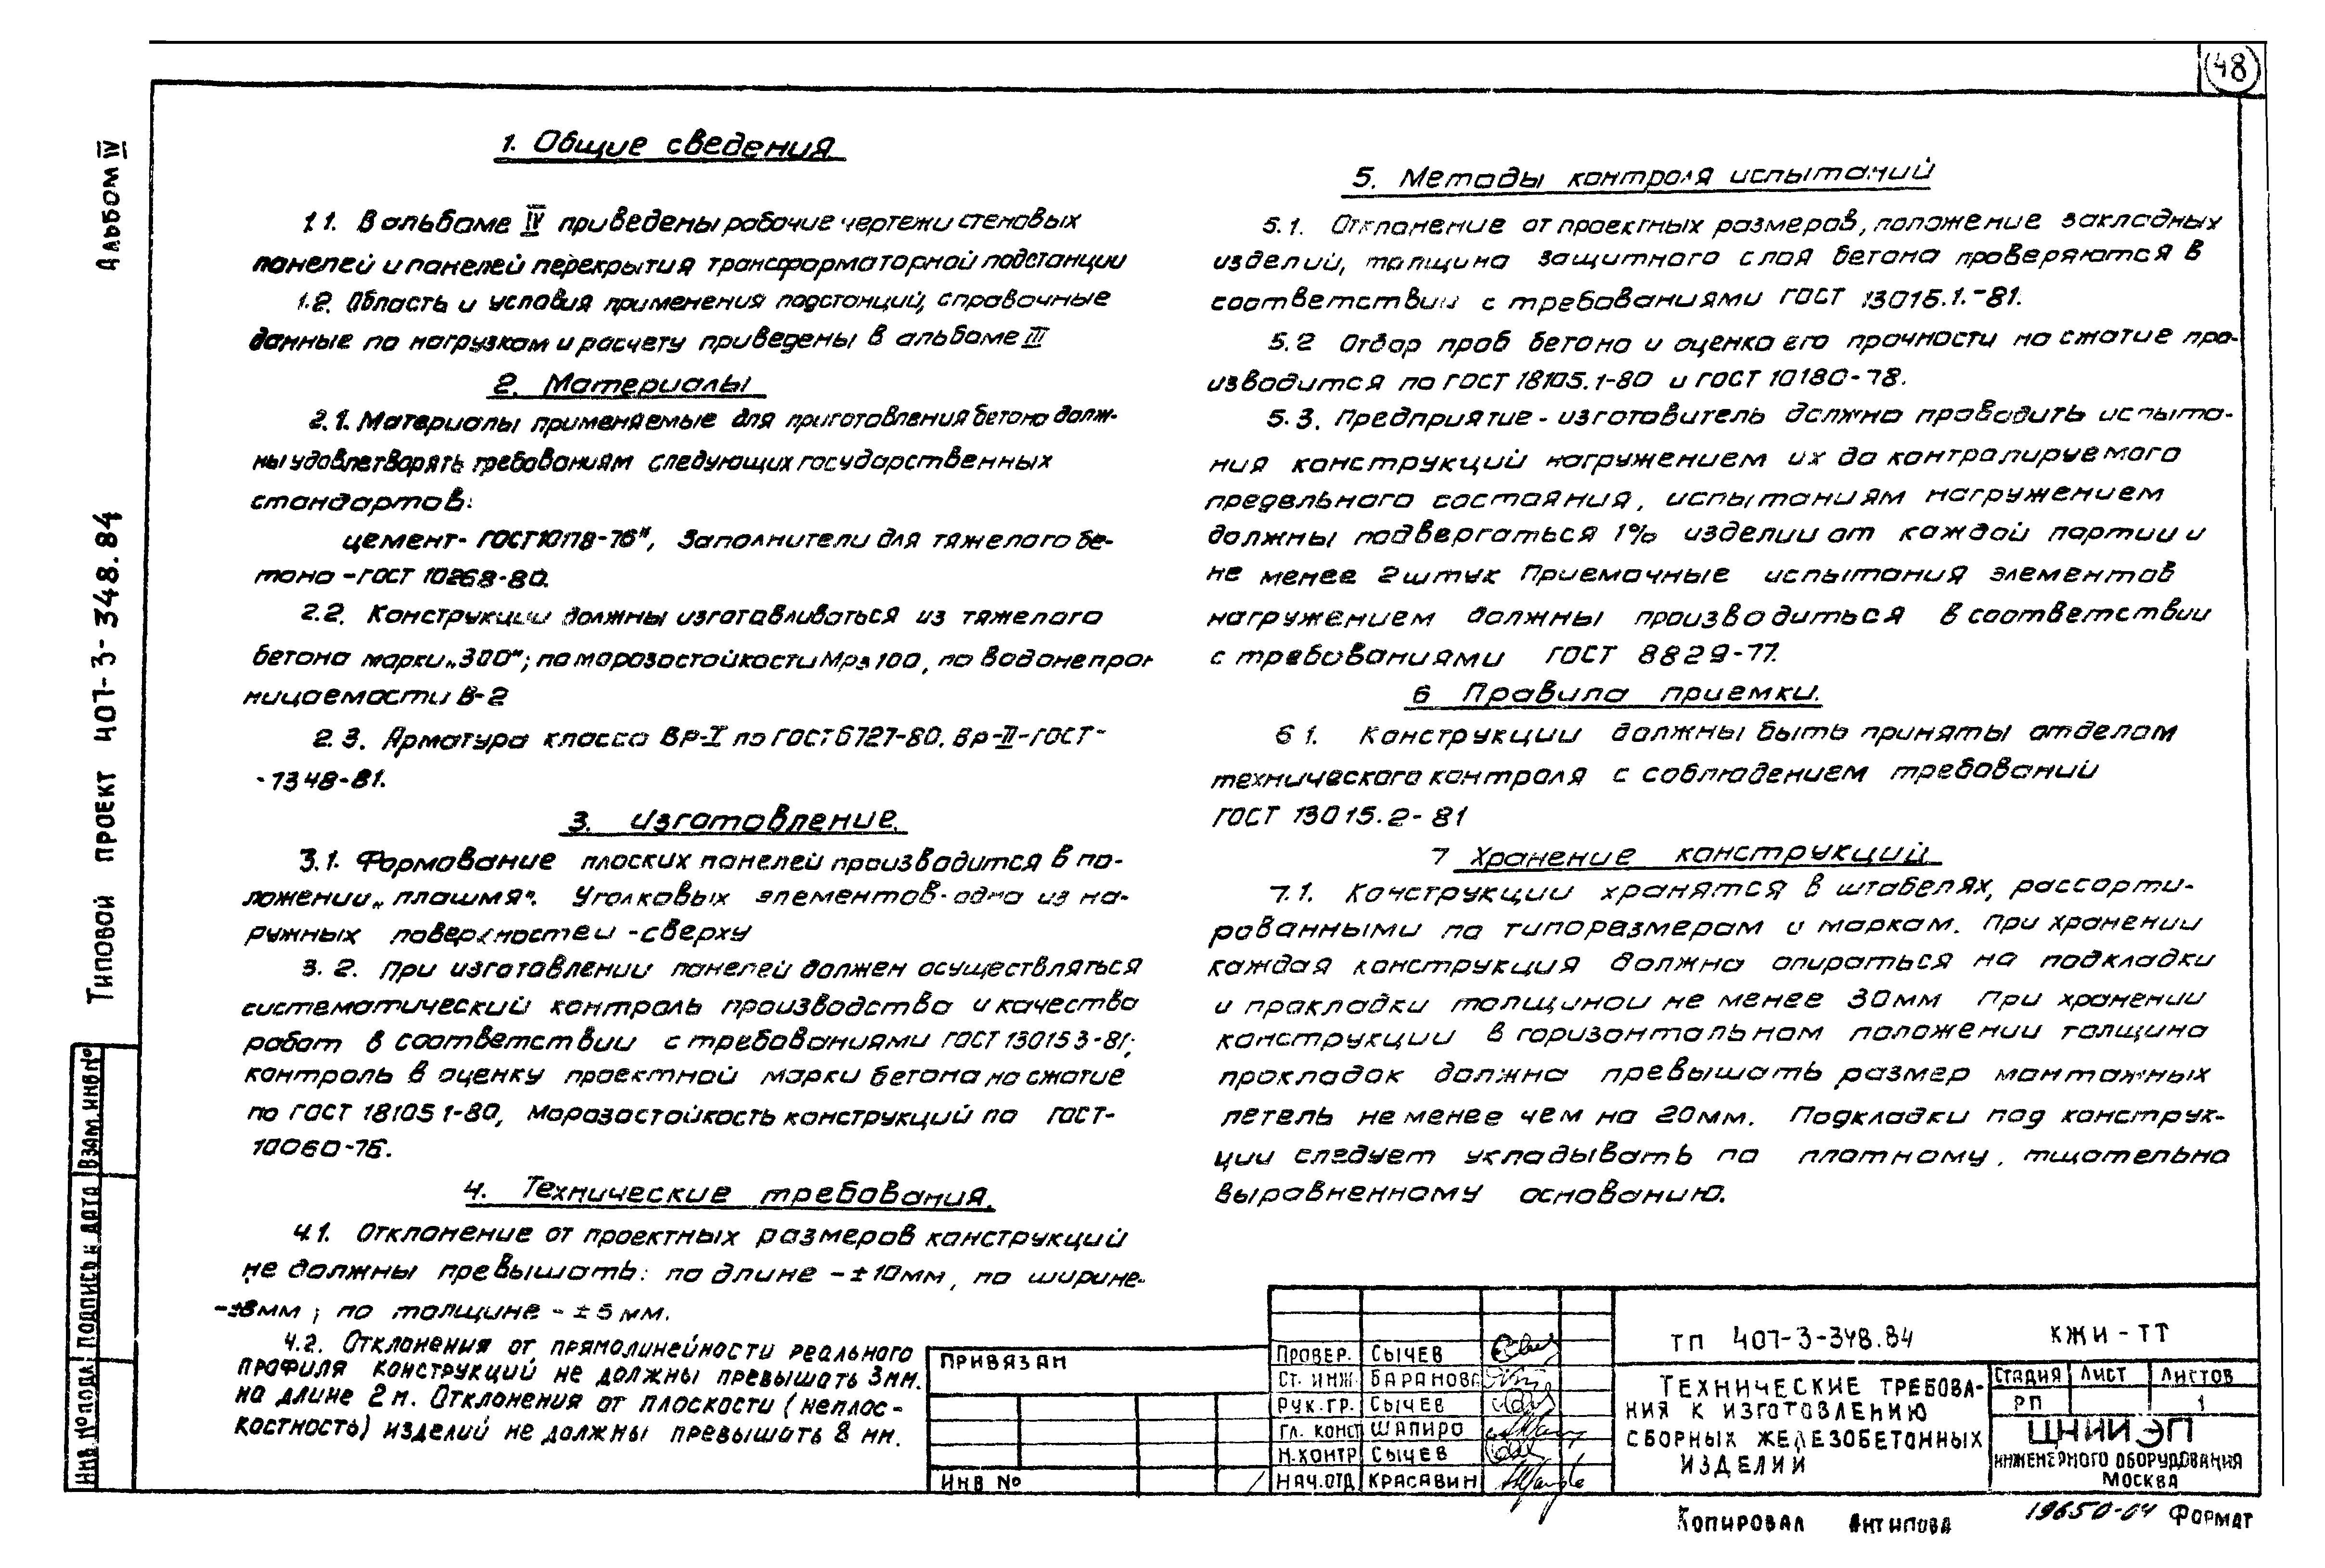 48
Альбом IV
Типовой проект 407-3-348.84
1. Общие сведения
1.1. В альбоме IV приведены рабочие чертежи стеновых
панелей и панелей перекрытия трансформаторной подстанции
1.2. Область и условия применения подстанций, справочные
данные по нагрузкам и расчету приведены в альбоме III
2. Материалы
2.1. Материалы применяемые для приготовления бетона долж-
ны удовлетворять требованиям следующих государственных
стандартов:
цемент- ГОСТ , Заполнители для тяжелого бе-
тона - ГОСТ 10268-80.
2.2. Конструкции должны изготавливаться из тяжелого
бетона марки „300"; по морозостойкости Мрз 100, по водонепрон
ницаемости В-2
2.3. Арматура класса Вр-I по ГОСТ 6727-80. Вр-II-ГОСТ-
-7348-81.
3. Изготовление.
3.1. Формование плоских панелей производится в по-
ложении „плашмя". Уголковых элементов-одна из на-
ружных поверхностей - сверху
3.2. При изготовлении панелей должен осуществляться
систематический контроль производства и качества
работ в соответствии с требованиями ГОСТ 13015 3-81;
контроль в оценку проектной марки бетона на сжатие
по ГОСТ 18105 1-80, морозостойкость конструкций по ГОСТ-
10060-76.
4. Технические требования.
4.1. Отклонение от проектных размеров конструкций
не должны превышать: по длине - ± 10мм, по ширине-
-±8мм; по толщине - ± 5мм.
4.2. Отклонения от прямолинейности реального
профиля конструкций не должны превышать 3мм.
на длине 2м. Отклонения от плоскости (неплос-
костность) изделий не должны превышать 8 мм.
5. Методы контроля испытаний
5.1. Отклонение от проектных размеров, положение закладных
изделий, толщина защитного слоя бетона проверяются в
соответствии с требованиями ГОСТ 13015.1.-81.
5.2 Отбор проб бетона и оценка его прочности на сжатие про-
изводится по ГОСТ 18105.1-80 и ГОСТ 10180-78.
5.3. Предприятие-изготовитель должна проводить испыта-
ния конструкций нагружением их до контролируемого
предельного состояния, испытаниям нагружением
должны подвергаться 1% изделии от каждой партии и
не менее 2 штук Приемочные испытания элементов
нагружением должны производиться в соответствии
с требованиями ГОСТ 8829-77.
6 Правила приемки.
6 1. Конструкции должны быть приняты отделом
технического контроля с соблюдением требований
ГОСТ 13015.2-81
7 Хранение конструкций
7.1. Конструкции хранятся в штабелях, рассорти-
рованными по типоразмерам и маркам. При хранении
каждая конструкция должна опираться на подкладки
и прокладки толщиной не менее 30мм При хранении
конструкции в горизонтальном положении толщина
прокладок должна превышать размер монтажных
петель не менее чем на 20мм. Подкладки под конструк-
ции следует укладывать по плотному, тщательно
выравненному основанию.
Инв № подл. Подпись и дата Взам. инв №
Привязан
Инв №
Провер. Сычев
Ст. инж Баранова
Рук. гр. Сычев
Гл. конст Шапиро
Н.контр Сычев
Нач.отд Красавин
ТП 407-3-348.84 КЖИ-ТТ
Технические требова-
ния к изготовлению
сборных железобетонных
изделии
Стадия Лист Листов
РП 1
ЦНИИЭП
инженерного оборудования
Москва
Копировал Антипова 19650-04 Формат